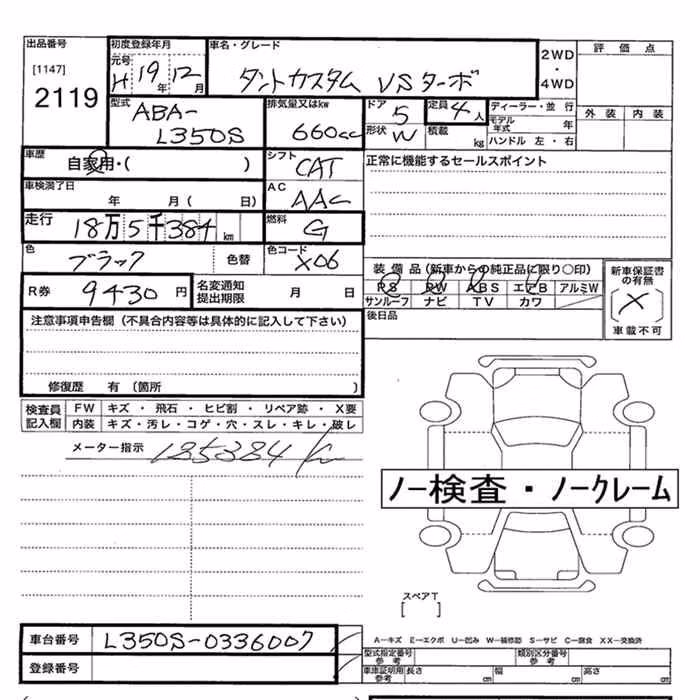 出品番号
[1147]
2119
初度登録年月
元号
H 19年 12月
車名・グレード
タントカスタム VSターボ
2WD
・
4WD
評価点
外装 内装
型式
ABA-
L350S
排気量又はkw
660cc
ドア 5
形状 W
定員 4人
積載 kg
ディーラー・並行
モデル年式 年
ハンドル 左・右
車歴
自家用・( )
シフト
CAT
正常に機能するセールスポイント
車検満了日
年 月( 日)
AC
AAC
走行
18万5千384km
燃料
G
色
ブラック
色替
色コード
X06
装備品(新車からの純正品に限り○印)
PS PW ABS エアB アルミW
サンルーフ ナビ TV カワ
新車保証書の有無
(×)
車載不可
R券 9430円
名変変通知
提出期限 月 日
後日品
注意事項申告欄(不具合内容等は具体的に記入して下さい)
修復歴 有(箇所 )
検査員記入欄
FW キズ・飛石・ヒビ割・リペア跡・X要
内装 キズ・汚レ・コゲ・穴・スレ・キレ・破レ
メーター指示 185384km
ノー検査・ノークレーム
スペアT
[ ]
車台番号 L350S-0336007
登録番号
A-キズ E-エクボ U-凹み W-補修跡 S-サビ C-腐食 XX-交換済
型式指定番号 参考
類別区分番号 参考
車庫証明用 参考
長さ cm 幅 cm 高さ cm